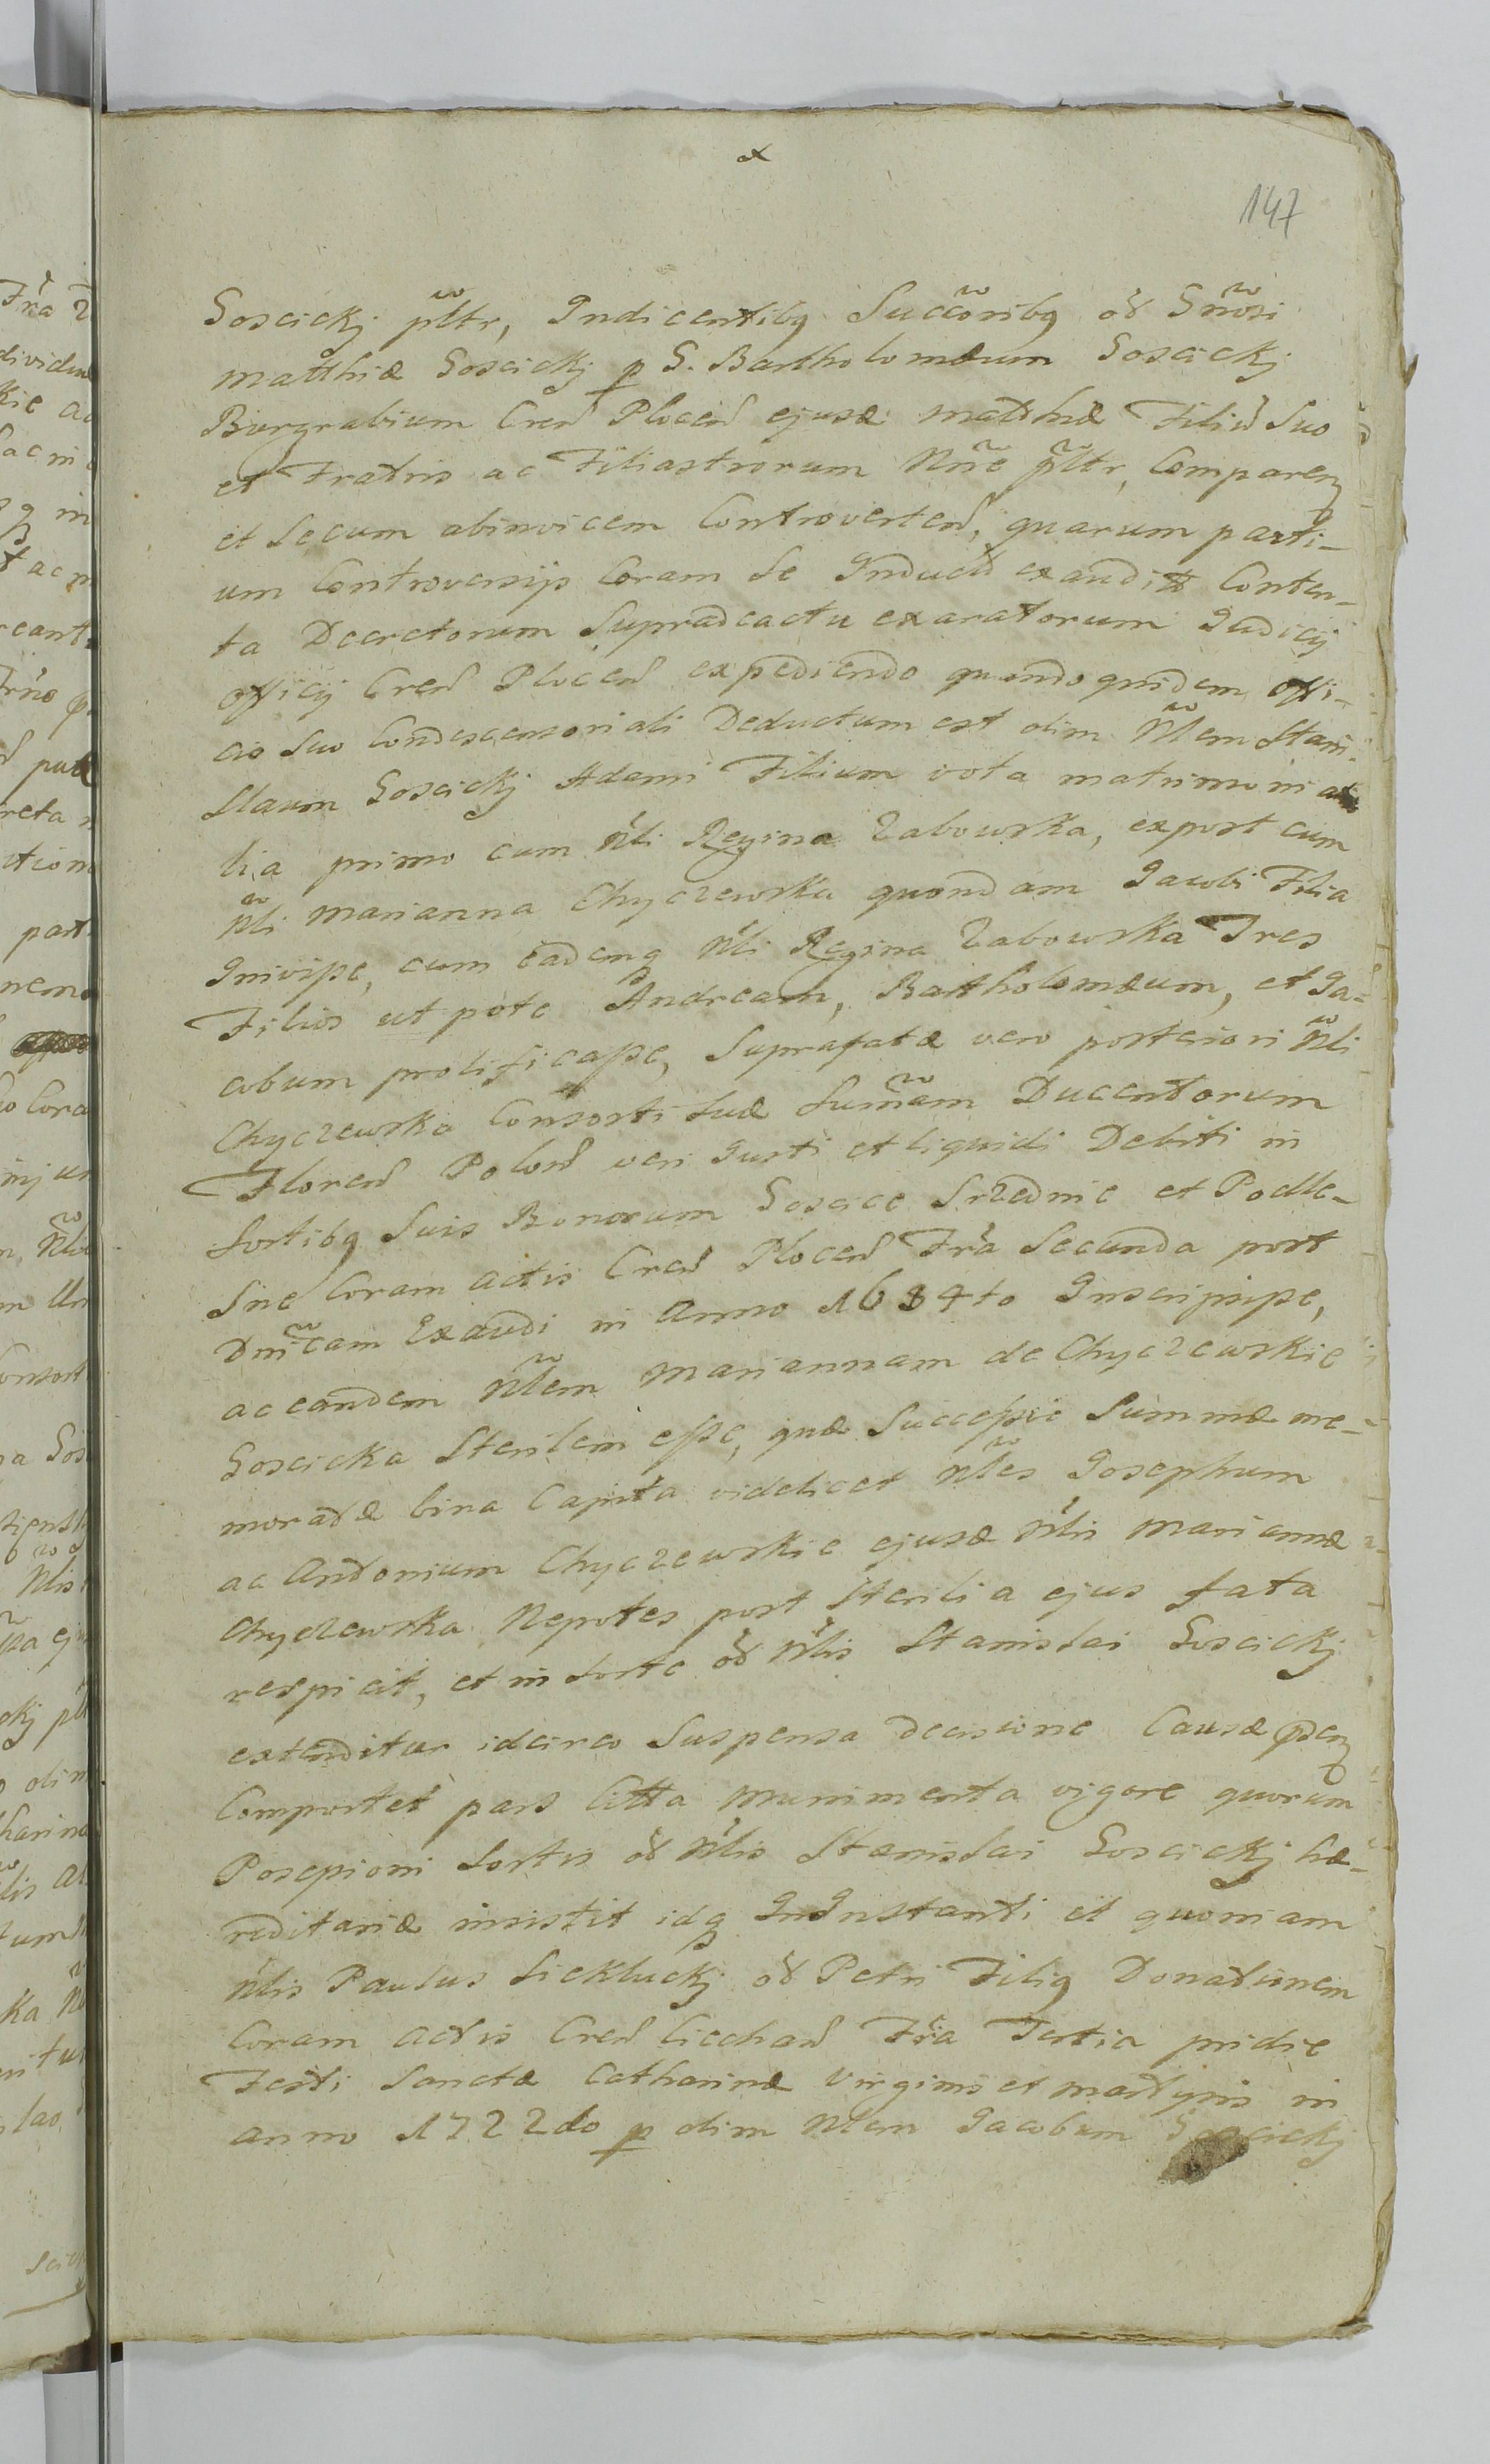 147
Goscickj pltr, Indicentibq Succoribq od Gnosi
Matthiæ Goscickj p G. Bartholomæum Goscickj
Burgrabium Cren Plocen ejusd Matthiæ Filiu Suo
et Fratris ac Filiastrorum Nnre pltr, Comparenz
et Secum abinvicem Controverten, quarum parti-
um Controversijs Coram Se Inductis exauditis Conten-
ta Decretorum Supradcactu exaratorum Iudicij
officij Cren Plocen expediendo quandoquidem offi-
cio Suo Condescensoriali Deductum est olim Nlem Stani-
slaum Goscickj Adami Filium vota matrimonia
lia primo cum Nli Regina Zabowska, expost cum
Nli Marianna Chyczewska quondam Jacobi Filia
Inivisse, cum eademq Nli Regina Zabowska Tres
Filios utpote Andream, Bartholomæum, et Ja-
cobum prolificasse, Suprafatæ vero posteriori Nli
Chyczewska Consorti Suæ Summam Ducentorum
Floren Polon veri Justi et liquidi Debiti in
Sortibq Suis Bonorum Goscice Srzednie et Podle-
sne Coram Actis Cren Plocen Fria Secunda post
Dnicam Exaudi in Anno 1684to Inscripsisse,
ac eandem Nlem Mariannam de Chyczewskie
Goscicka Sterilem esse, quæ Successio Summæ me-
moratæ bina Capita videlicet Nles Josephum
ac Antonium Chyczewskie ejusd Nlis Mariannæ
Chyczewska Nepotes post Sterilia ejus fata
respicit, et in Sorte od Nlis Stanislai Goscickj
extenditur idcirco Suspensa decisione Causæ psenz
Comportet pars Citta munimenta vigore quorum
Possessioni Sortis od Nlis Stanislai Goscickj hæ-
reditariæ insistit idq In Instanti et quoniam
Nlis Paulus Siekluckj od Petri Filiq Donationem
Coram Actis Cren Ciechan Fria Tertia pridie
Festi Sanctæ Catharinæ Virginis et Martyris in
anno 1722do p olim Nlem Jacobum Goscickj